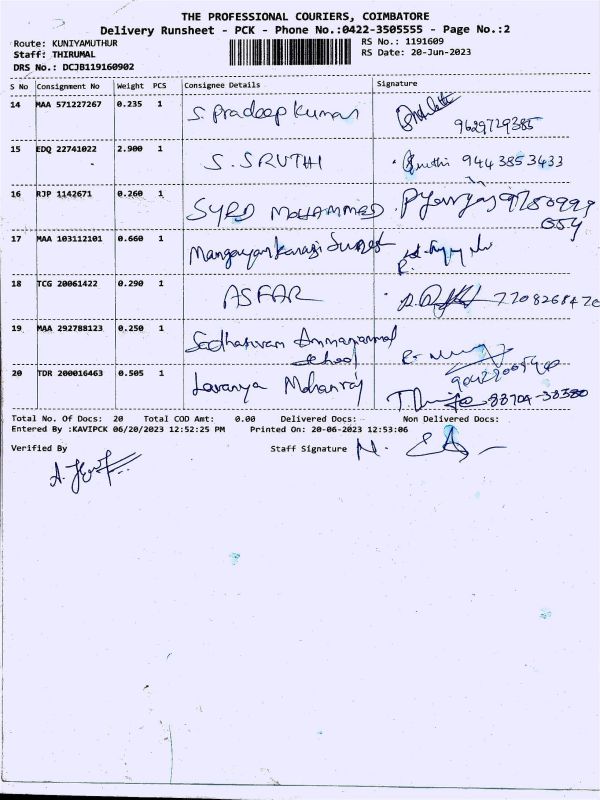 THE PROFESSIONAL COURIERS, COIMBATORE
Delivery Runsheet - PCK - Phone No.:0422-3505555 - Page No.:2
Route: KUNIYAMUTHUR
RS No.: 1191609
Staff: THIRUMAL
RS Date: 20-Jun-2023
DRS No.: DCJB119160902
S No Consignment No Weight PCS Consignee Details Signature
14 MAA 571227267 0.235 1 S. Pradeep Kumar
9629729385
15 EDQ 22741022 2.900 1 S. SRUTHI Sruthi 9443853433
16 RJP 1142671 0.260 1 SYED MOHAMMED
17 MAA 103112101 0.660 1
18 TCG 20061422 0.290 1 ASFAR
19 MAA 292788123 0.250 1
School
20 TDR 200016463 0.505 1 Lavanya Mohanraj
Total No. Of Docs: 20 Total COD Amt: 0.00 Delivered Docs: Non Delivered Docs:
Entered By :KAVIPCK 06/20/2023 12:52:25 PM Printed On: 20-06-2023 12:53:06
Verified By Staff Signature